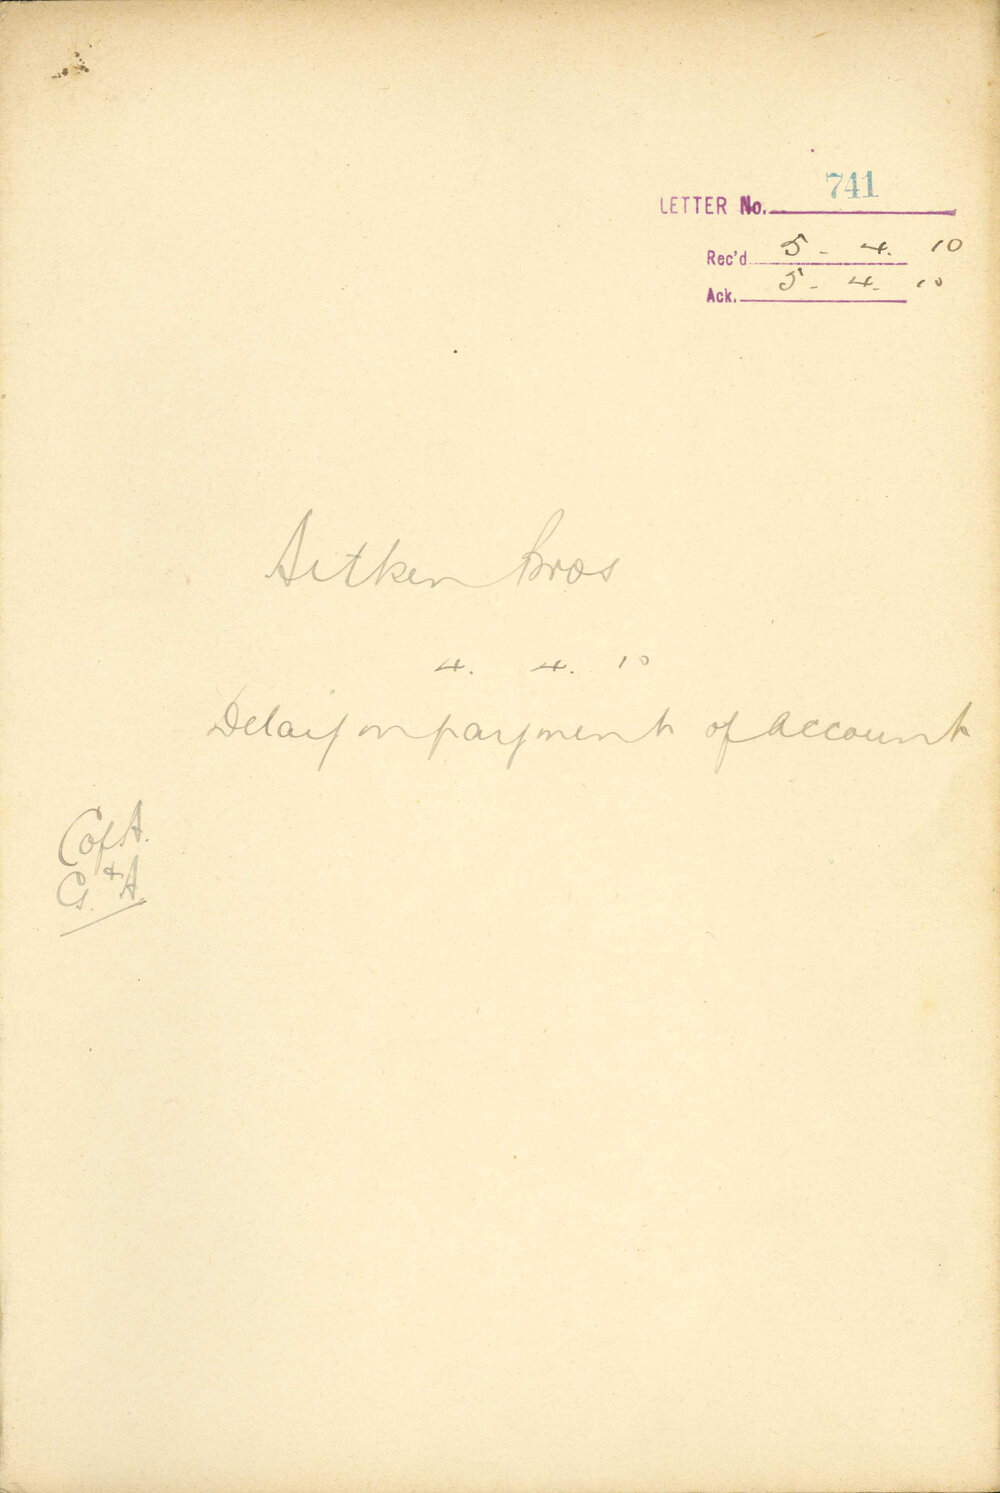 LETTER No. 741
Rec'd 5-4.10
Ack. 5-4.10
Aitken Bros
4.4.10
Delay in payment of account
C of A.
Cs. & A.